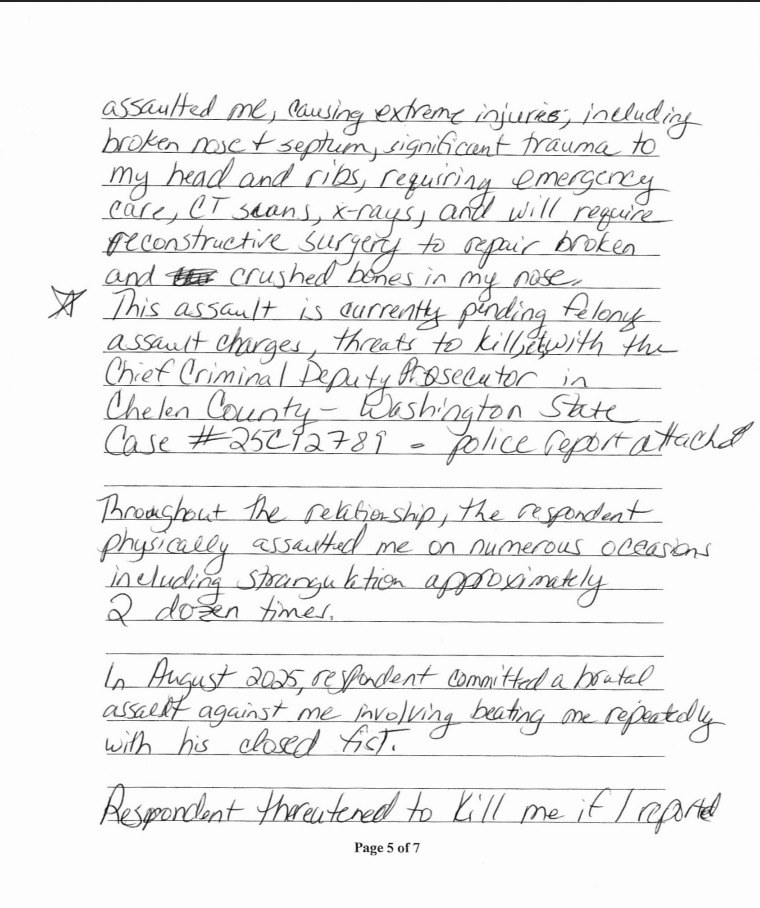 assaulted me, causing extreme injuries, including
broken nose + septum, significant trauma to
my head and ribs, requiring emergency
care, CT scans, x-rays, and will require
reconstructive surgery to repair broken
and crushed bones in my nose.
This assault is currently pending felony
assault charges, threats to kill, with the
Chief Criminal Deputy Prosecutor in
Chelen County - Washington State
Case #25C12789 - police report attached
Throughout the relationship, the respondent
physically assaulted me on numerous occasions
including strangulation approximately
2 dozen times.
In August 2025, respondent committed a brutal
assault against me involving beating me repeatedly
with his closed fist.
Respondent threatened to kill me if I reported
Page 5 of 7